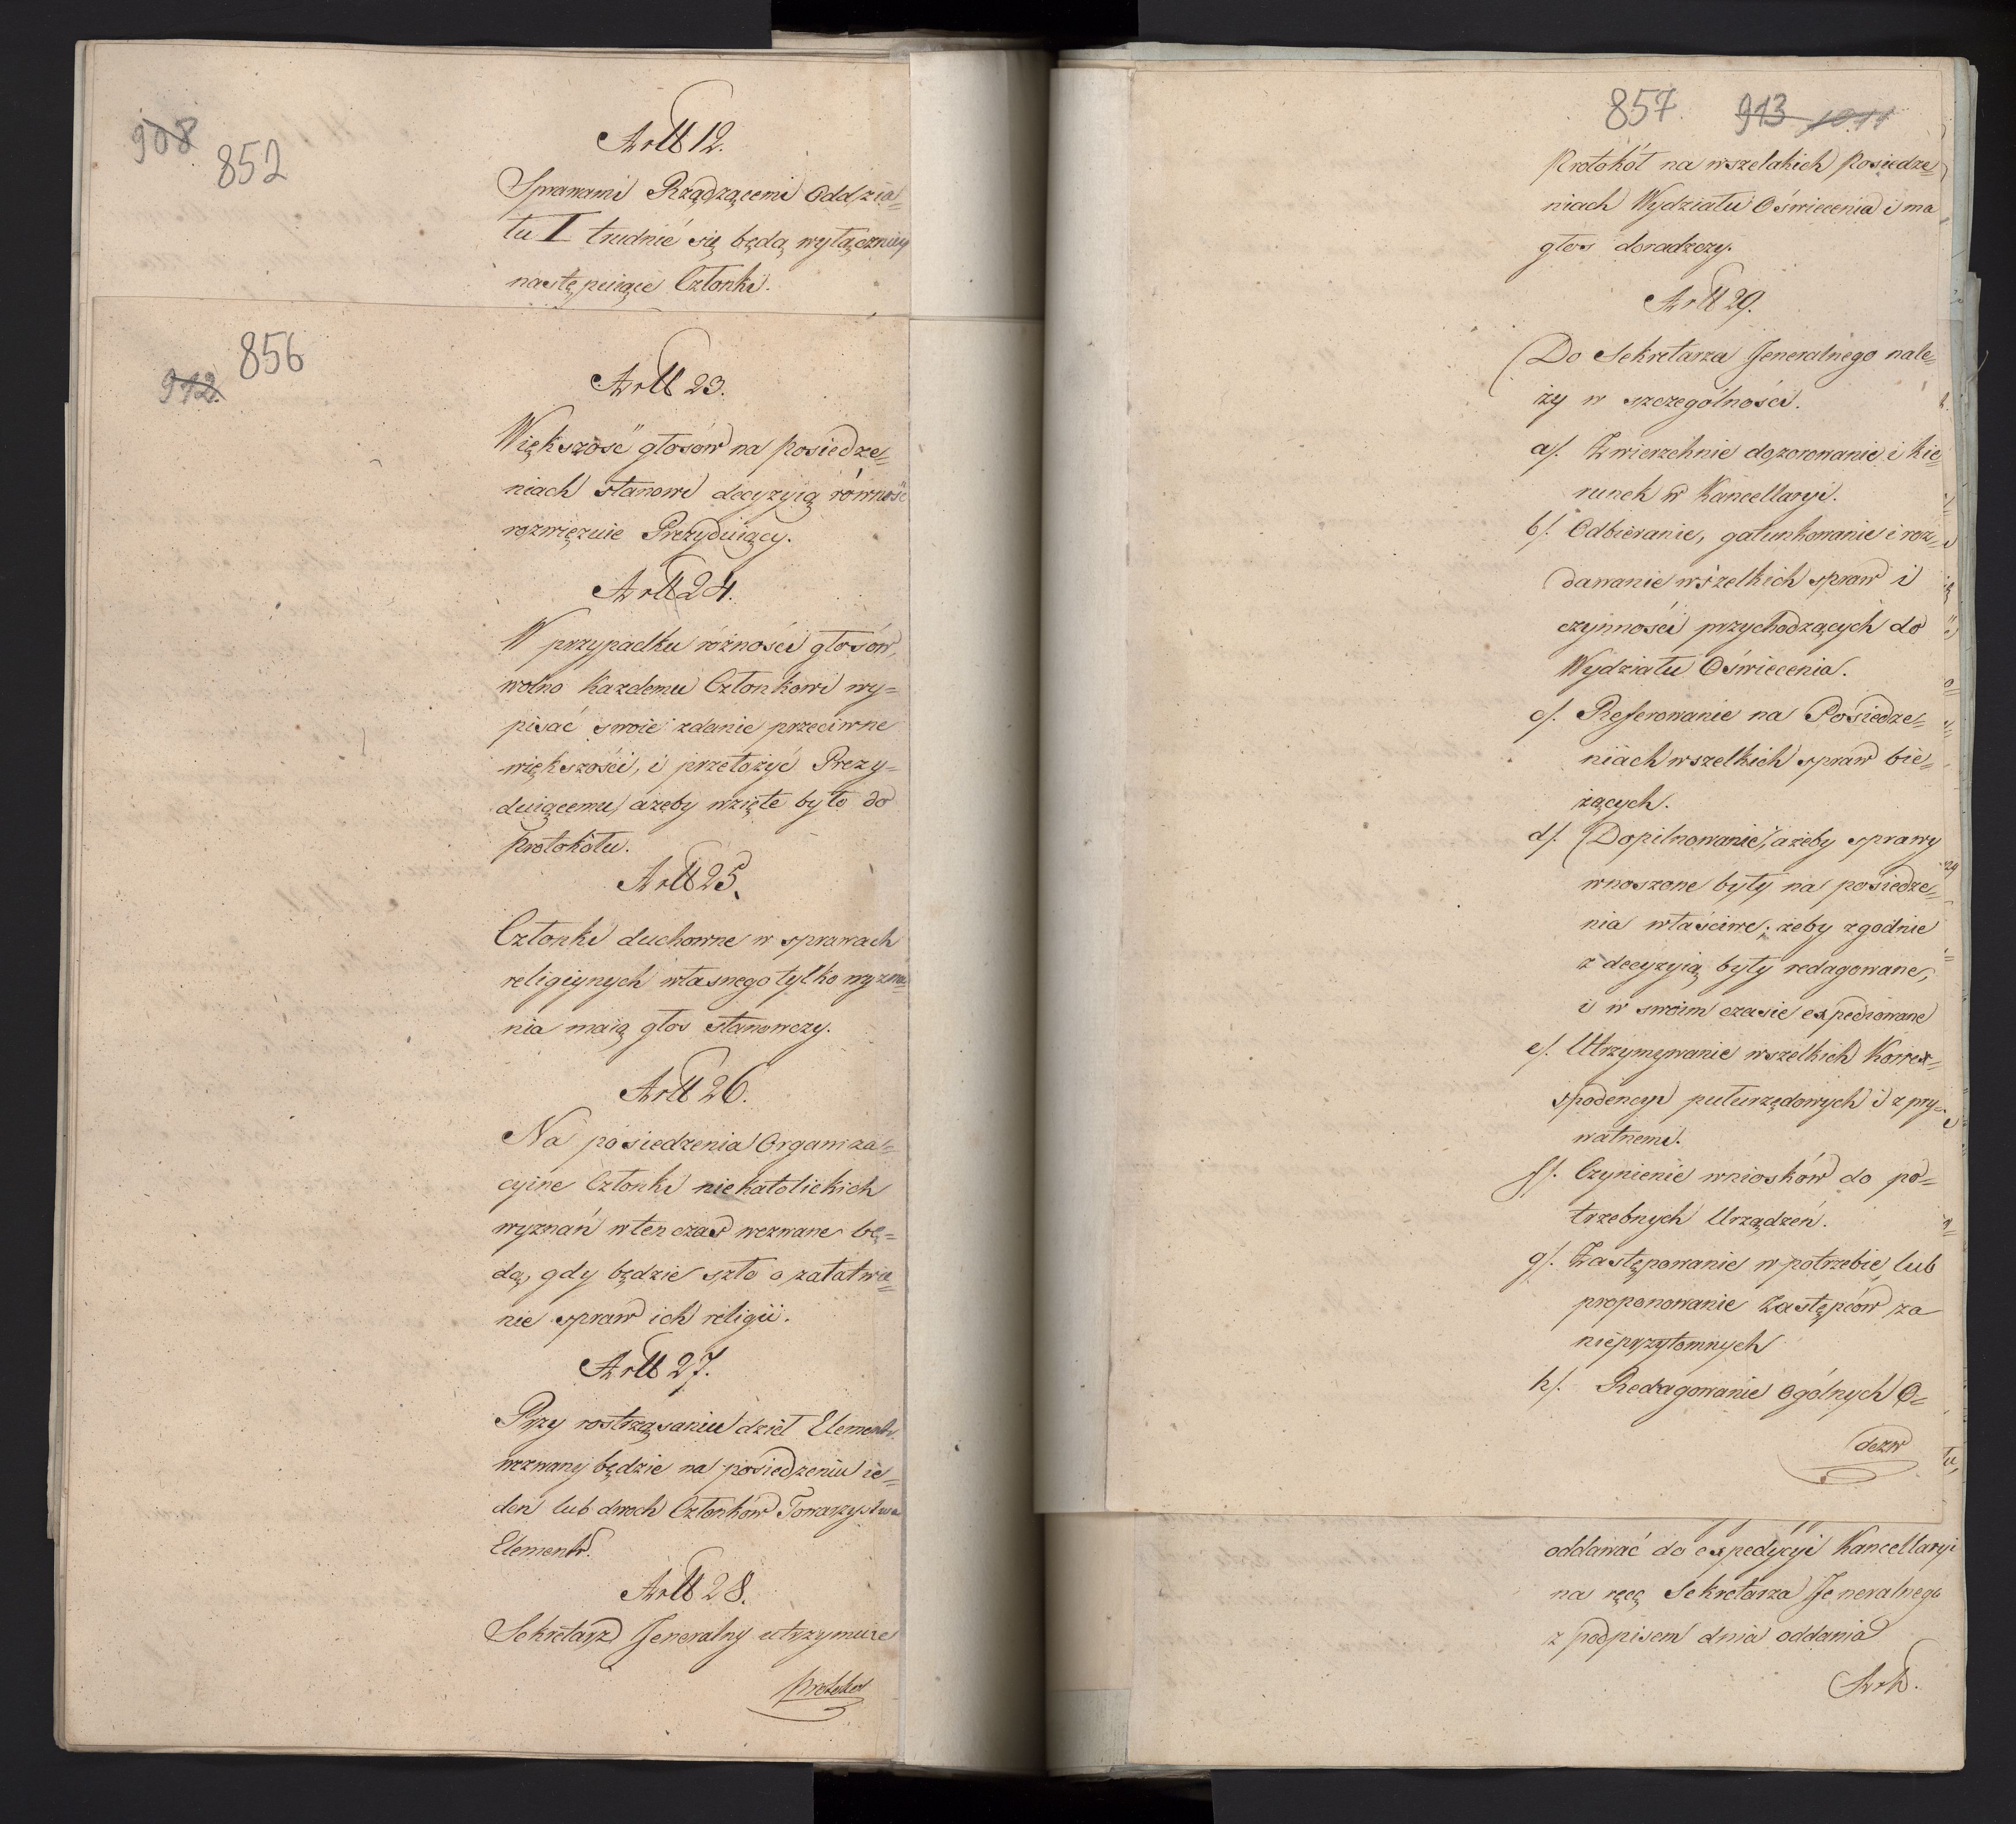 908
852
Artt 12.
Sprawami Rządzącemi Oddzia=
łu I trudnić się będą wyłączniey
następuiące Członki.
856
912.
Artt 23.
Większość głosów na posiedze=
niach stanowi decyzyią równość
rozwięzuie Prezyduiący.
Artt 24.
W przypadku różności głosów,
wolno każdemu Członkowi wy=
pisać swoie zdanie przeciwne
większości, i przełożyć Prezy=
duiącemu, ażeby wzięte było do
protokółu.
Artt 25.
Członki duchowne w sprawach
religiynych własnego tylko wyzna=
nia maią głos stanowczy.
Artt 26.
Na posiedzenia Organiza=
cyine Członki niekatolickich
wyznań w ten czas wezwane bę=
dą, gdy będzie szło o załatwie=
nie spraw ich religii.
Artt 27.
Przy rostrząsaniu dzieł Element.
wezwany będzie na posiedzeniu ie=
den lub dwoch Członków Towarzystwa
Element.
Artt 28.
Sekretarz Jeneralny utrzymuie
protokół
857. 913 1011
Protokół na wszelakich Posiedze=
niach Wydziału Oświecenia i ma
głos doradzczy.
Artt 29.
Do Sekretarza Jeneralnego nale=
ży w szczególności.
a/. Zwierzchnie dozorowanie i kie=
runek w Kancellaryi.
b/. Odbieranie, gatunkowanie i roz=
dawanie wszelkich spraw i
czynności przychodzących do
Wydziału Oświecenia.
c/. Referowanie na Posiedze=
niach wszelkich spraw bie=
żących.
d/. Dopilnowanie, ażeby sprawy
wnoszone były na posiedze=
nia właściwe; żeby zgodnie
z decyzyią były redagowane,
i w swoim czasie expediowane
e/. Utrzymywanie wszelkich Korres=
spodencyi pułurzędowych i z pry=
watnemi.
f/. Czynienie wniosków do po=
trzebnych Urządzeń.
g/. Zastępowanie w potrzebie lub
proponowanie Zastępców za
nieprzytomnych
h/. Redagowanie ogólnych O=
dezw
oddawać do expedycyi Kancellaryi
na ręcę Sekretarza Jeneralnego
z podpisem dnia oddania
Art.